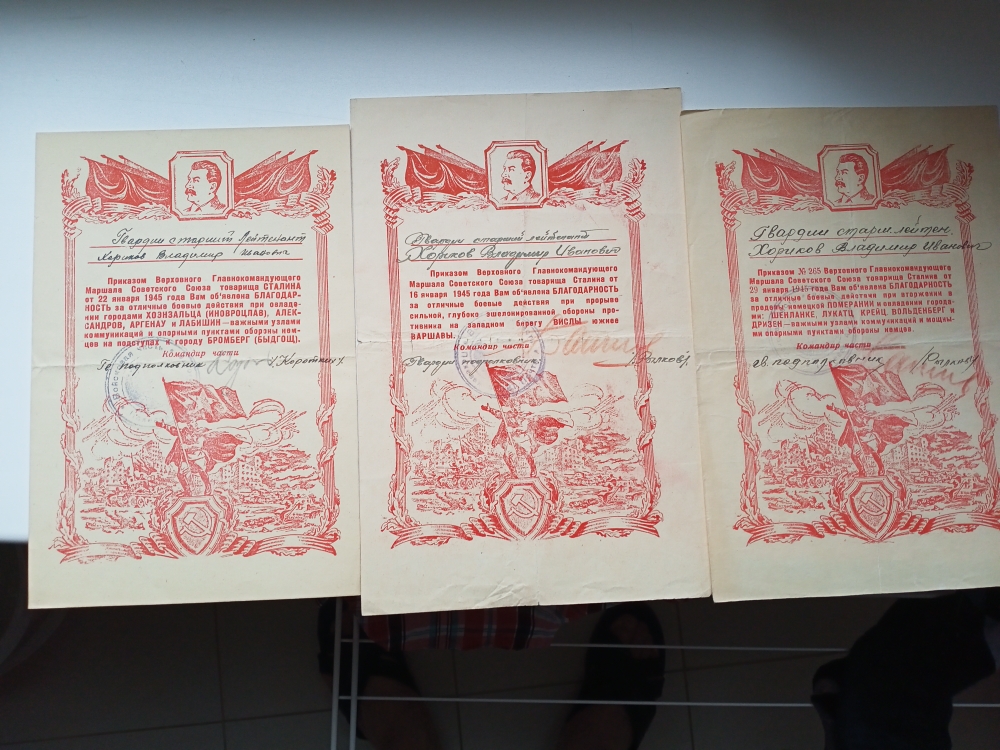 Гвардии старший Лейтенант
Хориков Владимир Иванович
Приказом Верховного Главнокомандующего
Маршала Советского Союза товарища СТАЛИНА
от 22 января 1945 года Вам об'явлена БЛАГОДАР-
НОСТЬ за отличные боевые действия при овладе-
нии городами ХОЭНЗАЛЬЦА (ИНОВРОЦЛАВ), АЛЕК-
САНДРОВ, АРГЕНАУ и ЛАБИШИН—важными узлами
коммуникаций и опорными пунктами обороны нем-
цев на подступах к городу БРОМБЕРГ (БЫДГОЩ).
Командир части
Гв. подполковник
Гвардии старший лейтенант
Хориков Владимир Иванович
Приказом Верховного Главнокомандующего
Маршала Советского Союза товарища Сталина от
16 января 1945 года Вам об'явлена БЛАГОДАРНОСТЬ
за отличные боевые действия при прорыве
сильной, глубоко эшелонированной обороны про-
тивника на западном берегу ВИСЛЫ южнее
ВАРШАВЫ.
Командир части
Гвардии подполковник
Гвардии старш. лейтен.
Хориков Владимир Иванович
Приказом № 265 Верховного Главнокомандующего
Маршала Советского Союза товарища Сталина от
29 января 1945 года Вам об'явлена БЛАГОДАРНОСТЬ
за отличные боевые действия при вторжении в
пределы немецкой ПОМЕРАНИИ и овладении города-
ми: ШЕНЛАНКЕ, ЛУКАТЦ КРЕЙЦ, ВОЛЬДЕНБЕРГ и
ДРИЗЕН—важными узлами коммуникаций и мощны-
ми опорными пунктами обороны немцев.
Командир части
Гв. подполковник